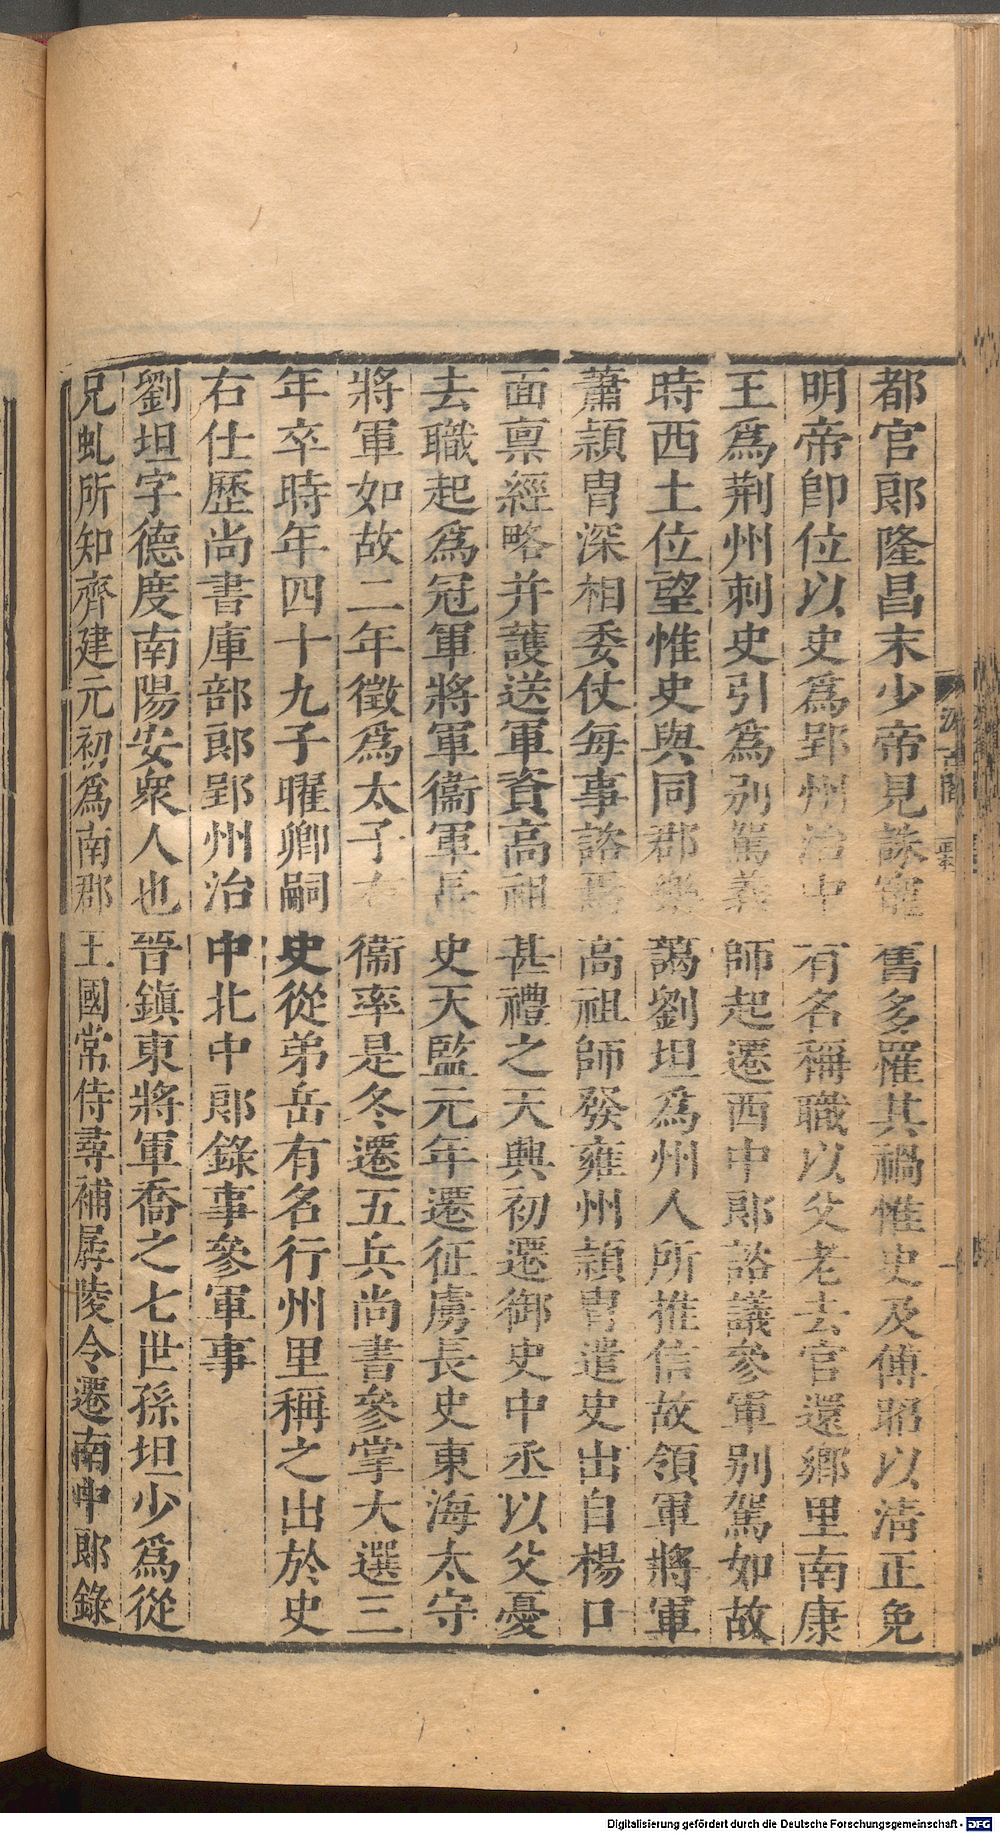 都官郞隆昌末少帝見誅寵舊多罹其禍惟史及傅昭以清正免
明帝卽位以史爲郢州治中有名稱職以父老去官還鄉里南康
王爲荆州刺史引爲别駕義師起遷西中郞諮議參軍别駕如故
時西土位望惟史與同郡樂藹劉坦爲州人所推信故領軍將軍
蕭頴胄深相委仗每事諮焉高祖師發雍州頴胄遣史出自楊口
面稟經略并護送軍資高祖甚禮之天興初遷御史中丞以父憂
去職起爲冠軍將軍衞軍長史天監元年遷征虜長史東海太守
將軍如故二年徵爲太子右衞率是冬遷五兵尚書參掌大選三
年卒時年四十九子曜卿嗣史從弟岳有名行州里稱之出於史
右仕歷尚書庫部郞郢州治中北中郞錄事參軍事
劉坦字德度南陽安衆人也晉鎮東將軍喬之七世孫坦少爲從
兄虬所知齊建元初爲南郡王國常侍尋補孱陵令遷南中郞錄
Digitalisierung gefördert durch die Deutsche Forschungsgemeinschaft - DFG